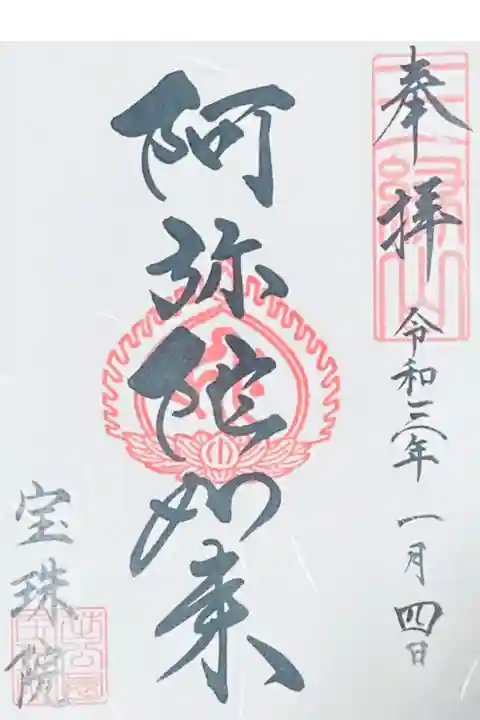 奉拝
三縁山
令和三年一月四日
阿弥陀如来
宝珠院